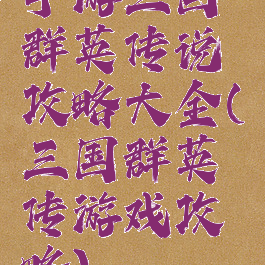 手游三国
群英传说
攻略大全(
三国群英
传游戏攻
略)